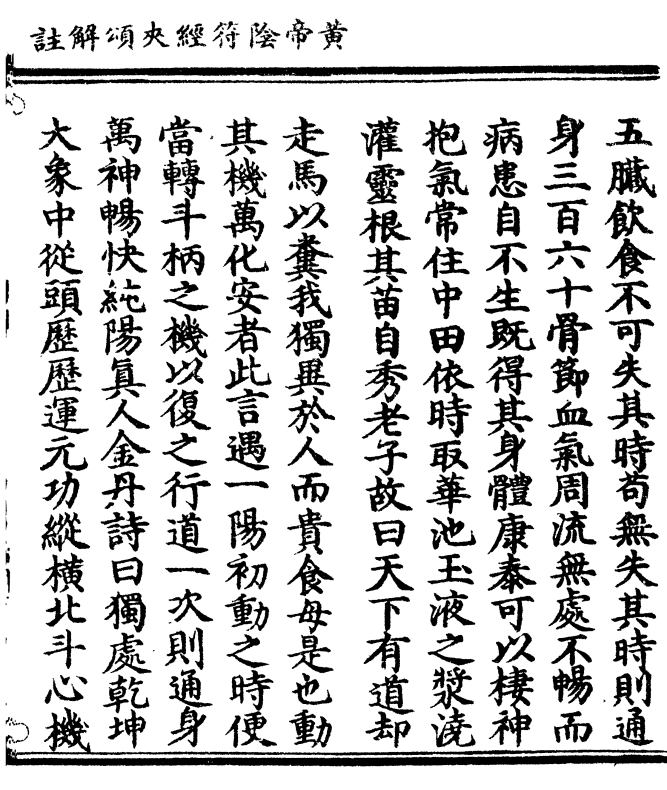 黃帝陰符經夾頌解註
五臟飲食不可失其時苟無失其時則通
身三百六十骨節血氣周流無處不暢而
病患自不生既得其身體康泰可以棲神
抱氣常住中田依時取華池玉液之漿澆
灌靈根其苗自秀老子故曰天下有道却
走馬以糞我獨異於人而貴食母是也動
其機萬化安者此言遇一陽初動之時便
當轉斗柄之機以復之行道一次則通身
萬神暢快純陽眞人金丹詩曰獨處乾坤
大象中從頭歷歷運元功縱橫北斗心機